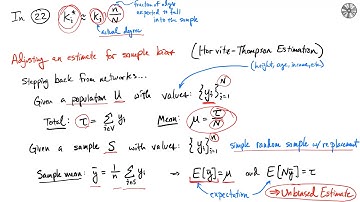 In (22) k_i* ≈ k_i n/N
fraction of edges
expected to fall
into the sample
actual degree
Adjusting an estimate for sample bias
(Horvitz-Thompson Estimation)
Stepping back from networks...
(height, age, income, etc)
Given a population U with values: {y_i}_{i=1}^N
Total: τ = Σ_{i∈U} y_i Mean: μ = τ/N
Given a sample S with values: {y_i}_{i=1}^n
simple random sample w/ replacement
Sample mean: ȳ = 1/n Σ_{i∈S} y_i ⇒ E[ȳ] = μ and E[Nȳ] = τ
expectation
⇒ Unbiased Estimate